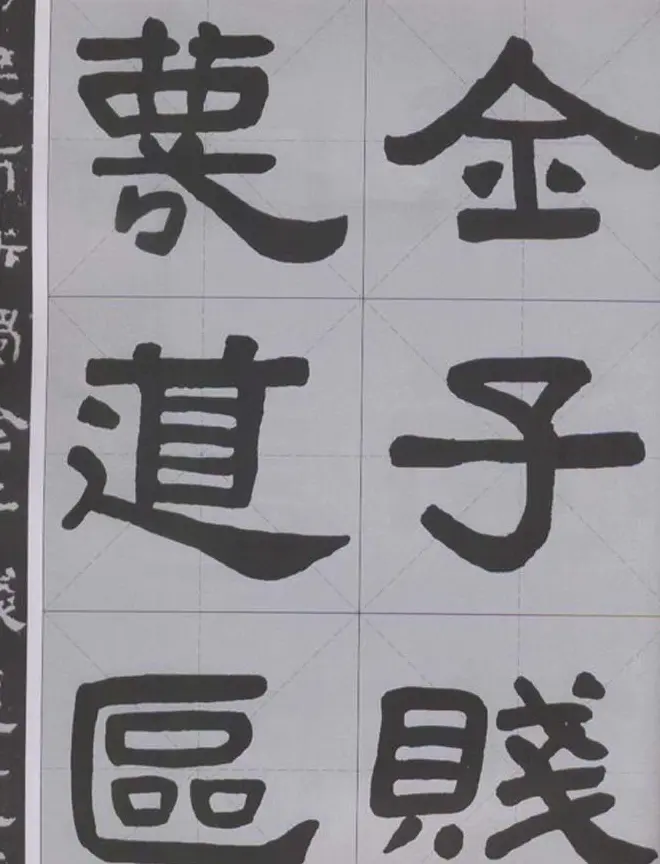 金子賤
蔑道區